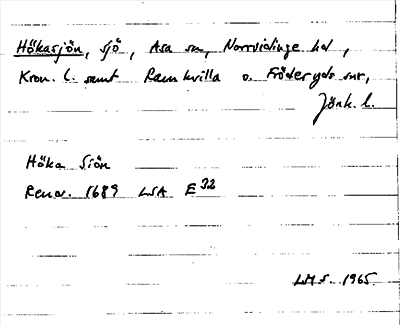 Hökasjön, sjö, Asa sn, Norrvidinge hd,
Kron. l. samt Ramkvilla o. Fröderyds snr,
Jönk. l.
Höka Siön
Renov. 1689 LSA E32
LMS. 1965